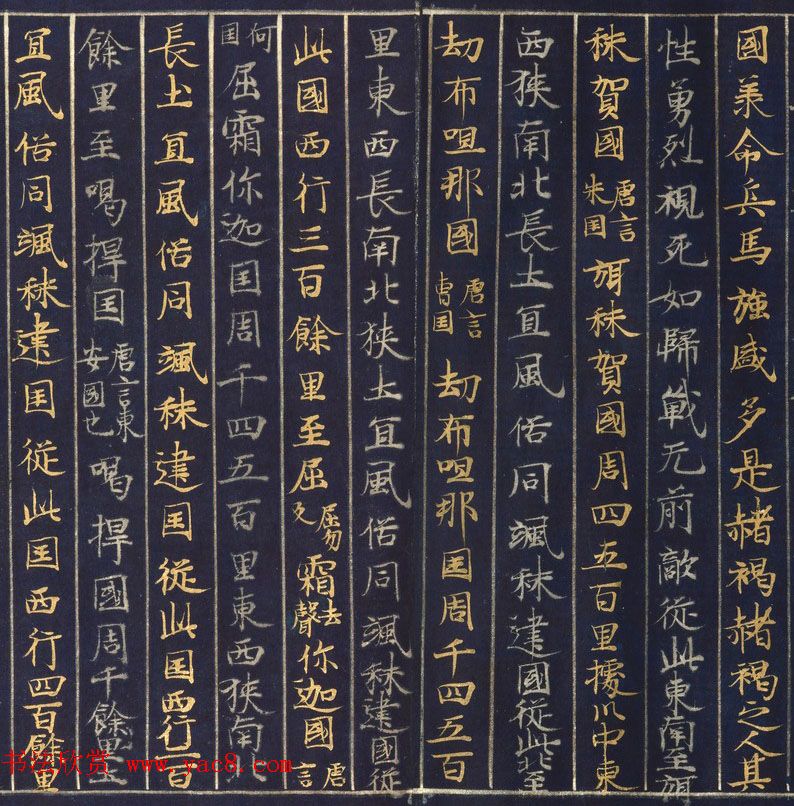 國羕命兵馬強盛多是赭褐赭褐之人其
性勇烈視死如歸戰无前敵從此東南至弭
秣賀國唐言米国弭秣賀國周四五百里據川中東
西狹南北長土宜風俗同颯秣建國從此北至
劫布呾那國唐言曹国劫布呾那国周千四五百
里東西長南北狹土宜風俗同颯秣建國從
此國西行三百餘里至屈屈勿反霜去聲你迦國唐言
何国屈霜你迦国周千四五百里東西狹南北
長土宜風俗同颯秣建国從此国西行二百
餘里至喝捍国唐言東安國也喝捍國周千餘里土
宜風俗同颯秣建国從此国西行四百餘里
书法欣赏 www.yac8.com